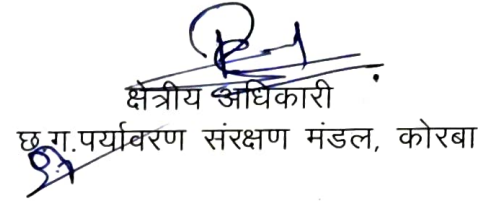 क्षेत्रीय अधिकारी
छ.ग.पर्यावरण संरक्षण मंडल, कोरबा